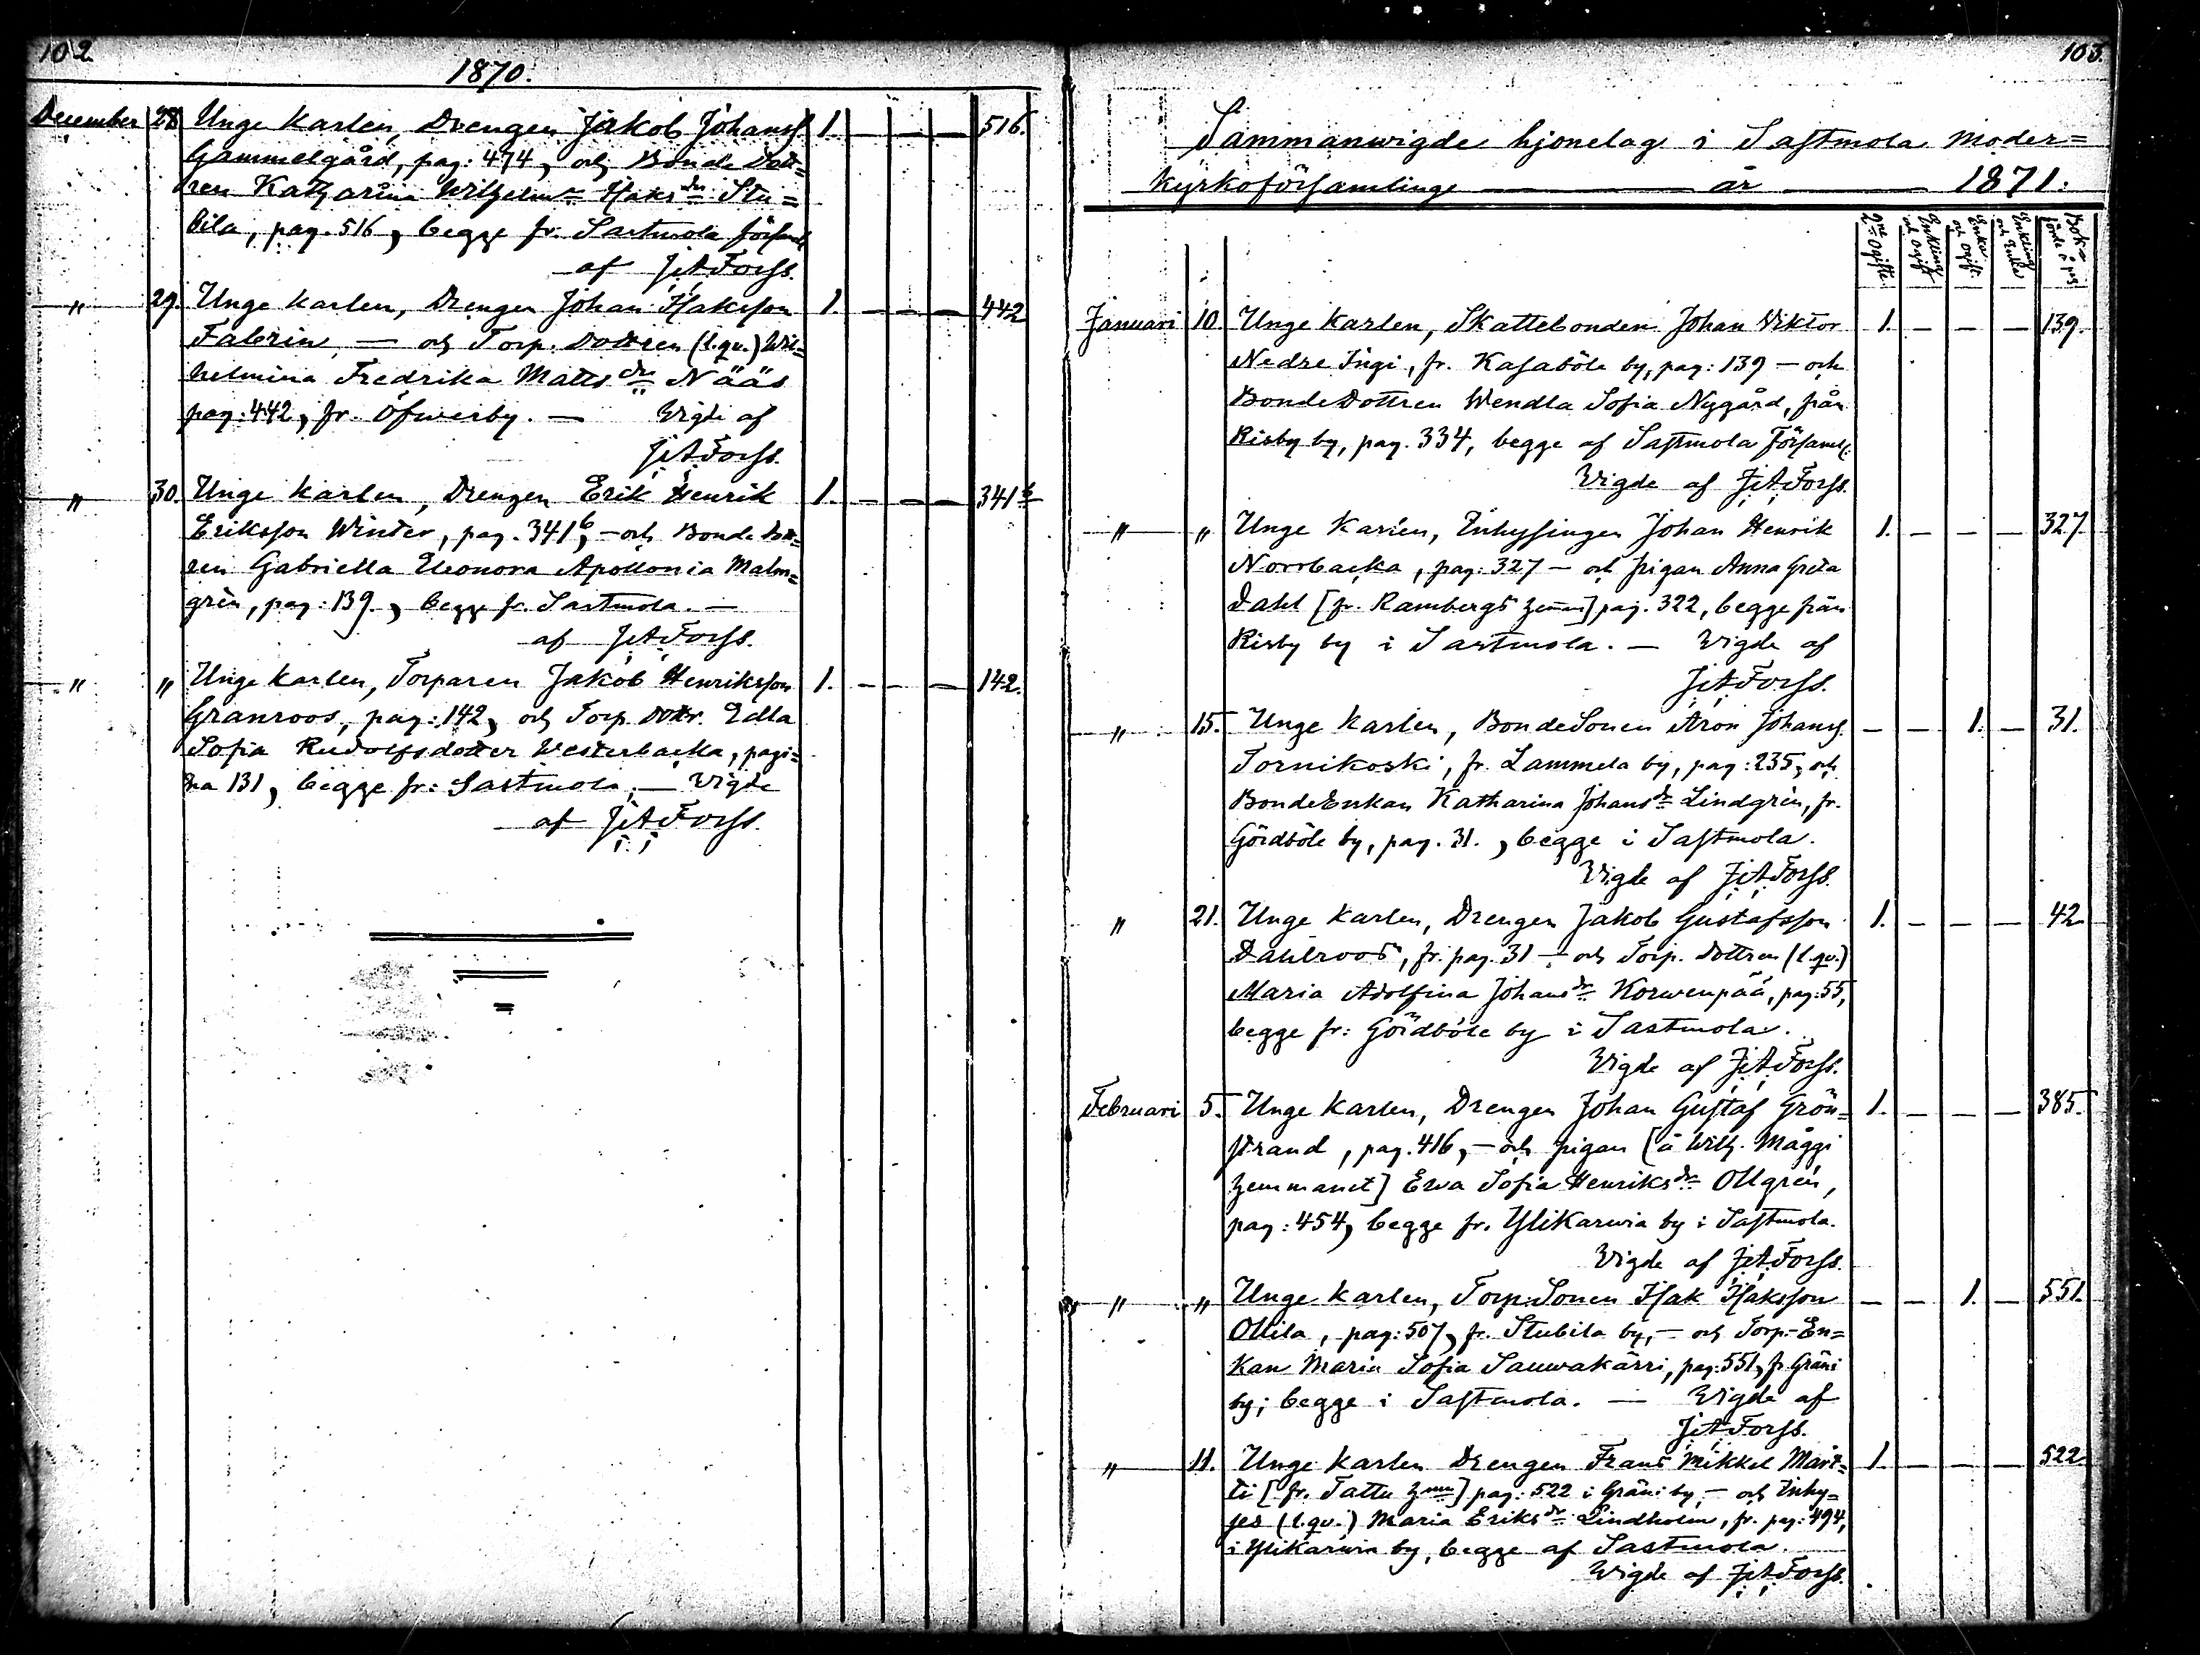 102.
1870.
December 28 Unge Karlen, Drengen Jakob Johanss. 1. — — — 516.
Gammelgård, pag: 474, och Bonde Dott=
ren Katharina Wilhelma Isaksdr Stu=
bila, pag. 516, begge fr. Sastmola församl
af J.A.Forss.
" 29. Unge Karlen, Drengen Johan Isaksson 1. — — — 442
Fabrin, — och Torp. Dottren (l.qv.) Wil=
helmina Fredrika Mattsdr Nääs
pag: 442, fr. Öfwerby. — Vigde af
J.A.Forss.
" 30. Unge Karlen, Drengen Erik Henrik 1. — — — 341b
Eriksson Winter, pag. 341b, — och Bonde Dott=
ren Gabriella Eleonora Apollonia Malm=
grén, pag: 139., begge fr. Sastmola. —
af J.A.Forss.
" " Unge Karlen, Torparen Jakob Henriksson 1. — — — 142.
Granroos, pag: 142, och Torp. Dottr. Edla
Sofia Rudolfsdotter Westerbacka, pagi=
na 131, begge fr: Sastmola, — Vigde
af J.A.Forss.
103.
Sammanwigde hjonelag i Sastmola Moder=
kyrkoförsamlinge — år — 1871.
2ne Ogifte
Enkling och Ogift
Enka och Ogift
Enkling och Enka
Januari 10 Unge Karlen, Skattebonden Johan Viktor 1. — — — 139.
Nedre Ingi, fr. Kasaböle by, pag: 139 — och
BondeDottren Wendla Sofia Nygård, från
Risby by, pag. 334, begge af Sastmola Församl:
Vigde af J.A.Forss.
" " Unge Karlen, Inhysingen Johan Henrik 1. — — — 327.
Norrbacka, pag: 327 — och pigan Anna Greta
Dahl [fr. Rambergs hemm] pag. 322, begge från
Risby by i Sastmola. — Vigde af
J.A.Forss.
" 15. Unge Karlen, BondeSonen Aron Johanss. — — 1. — 31.
Tornikoski, fr. Lammela by, pag: 235, och
BondeEnkan Katharina Johansdr Lindgrén, fr.
Gördböle by, pag. 31., begge i Sastmola.
Vigde af J.A.Forss.
" 21. Unge Karlen, Drengen Jakob Gustafsson 1. — — — 42
Dahlroos, fr. pag. 31 — och Torp. Dottren (l.qv.)
Maria Adolfina Johansdr Korwenpää, pag: 55,
begge fr: Gördböle by i Sastmola.
Vigde af J.A.Forss.
Februari 5. Unge Karlen, Drengen Johan Gustaf Grön= 1. — — — 385.
strand, pag. 416, — och pigan [å Wilh. Måggi
hemmanet] Ewa Sofia Henriksdr Ollgrén,
pag: 454, begge fr. Ylikarwia by i Sastmola.
Vigde af J.A.Forss.
" " Unge Karlen, Torp.Sonen Isak Isaksson — — 1. — 551.
Ollila, pag: 507, fr. Stubila by, — och Torp-En=
kan Maria Sofia Sauwakärri, pag: 551, fr Gräni
by; begge i Sastmola. — Vigde af
J.A.Forss.
" 11. Unge Karlen Drengen Frans Mikkel Mart= 1. — — — 522.
ti [fr. Tattu hmn] pag: 522 i Gräni by, — och Inhy=
ses (l.qv.) Maria Eriksdr Lindholm, fr. pag: 494,
i Ylikarwia by, begge af Sastmola.
Vigde af J.A.Forss.